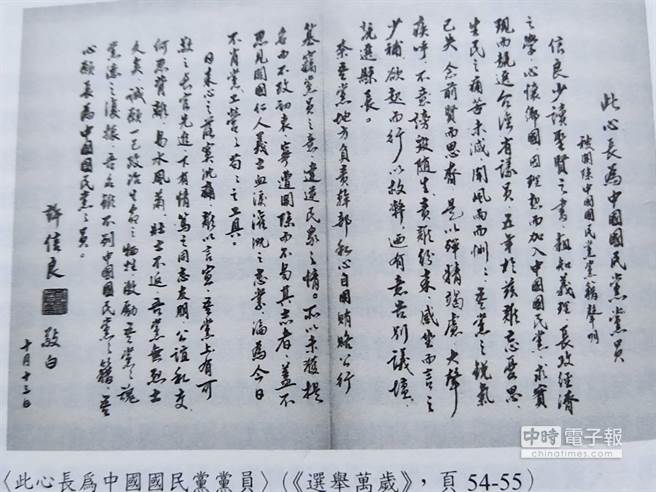 此心長為中國國民黨黨員
被開除中國國民黨黨籍聲明
信良少讀聖賢之書,粗知義理,長攻經濟
之學,心懷鄉國,因理想而加入中國國民黨,求實
現而競選台灣省議員,五年於茲,
生民之痛苦未減,聞風雨而惻惻;吾黨之銳氣
已失,念前賢而思奮。是以殫精竭慮,大聲
疾呼,不意謗毀隨生,責難紛來,感坐而言之
少補,欲起而行以救弊,迺有意告別議壇,
競選縣長。
奈吾黨地方負責幹部,私心自用,賄賂公行
篡竊黨員之意,違逆民眾之情。不以未獲提
名而不改初衷,寧遭開除而不易其志者,蓋不
忍見開國仁人義士血淚灌溉之志業,淪為今日
不肖黨工營營苟苟之工具。
日來心之落寞沈痛,難以言宣。吾黨上有可
敬之長官先進,下有情篤之同志友朋,公誼私交,
何忍背離,易水風蕭,壯士不返,吾黨無烈士
久矣,誠願一己政治生命之犧牲,激勵吾黨之魂
黨德之復振。吾名雖不列中國國民黨之籍,吾
心願長為中國國民黨之員。
許信良 敬白
十月十三日
中時電子報
chinatimes.com
〈此心長為中國國民黨黨員〉(《選舉萬歲》,頁 54-55)